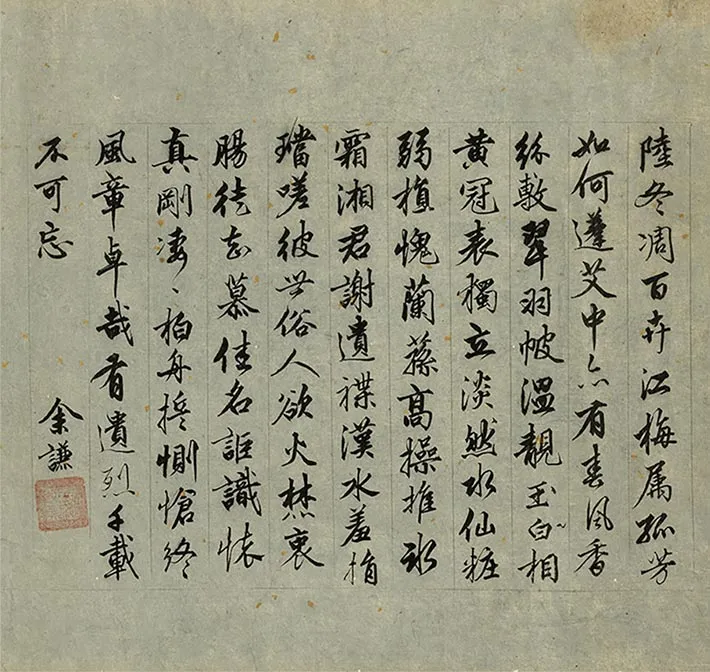 陸冬凋百卉江梅属孤芳
如何蓬艾中亦有春風香
紛敷翠羽帔溫靚玉白相
黃冠表獨立淡然水仙粧
弱植愧蘭蓀高操摧冰
霜湘君謝遺褋漢水羞捐
璫嗟彼世俗人欲火焚衷
腸徒知慕佳名詎識懷
真剛淒〻柏舟誓惻愴終
風章卓哉有遺烈千載
不可忘
余謙